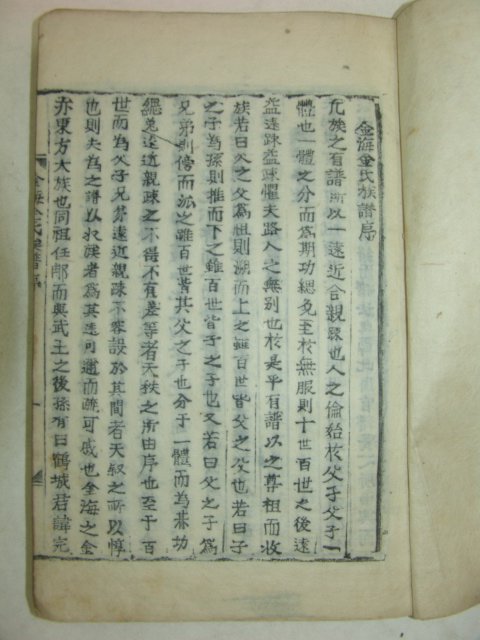 金海金氏族譜序
凡族之有譜所以一遠近合親踈也人之倫始於父子父子一
體也一體之分而爲期功緦免至於無服則十世百世之後遠
益遠踈益踈懼夫路人之無別也於是乎有譜以之尊祖而收
族若曰父之父爲祖則溯而上之雖百世皆父之父也若曰子
之子爲孫則推而下之雖百世皆子之子也又若曰父之子爲
兄弟則傍而派之雖百世皆其父之子也分于一體而爲朞功
緦免遠近親踈之不得不有差等者天秩之所由序也至于百
世而爲父子兄弟遠近親踈不容設於其間者天叙之所以惇
也則夫爲之譜以收族者爲其遠可遺而踈可戚也金海之金
亦東方大族也同祖任那而興武王之後孫有曰鶴城君諱完